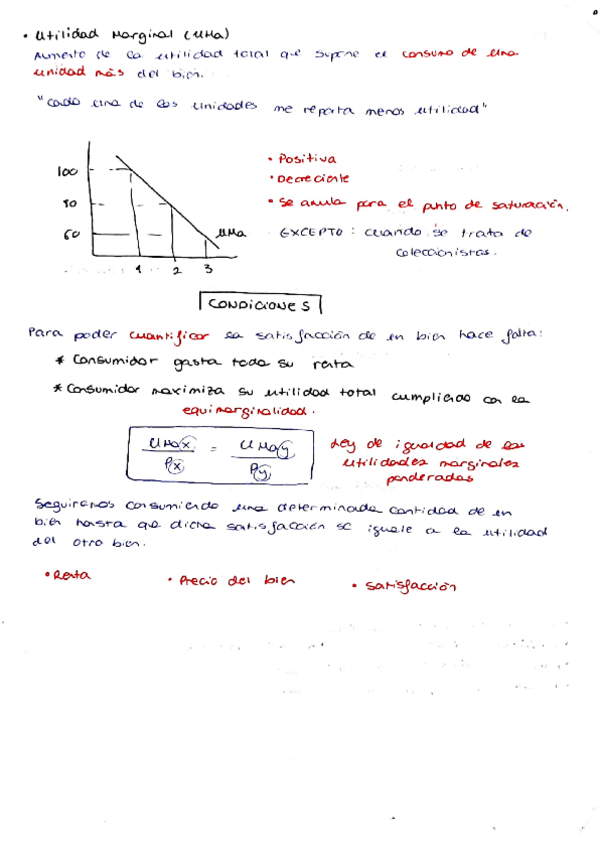 • Utilidad Marginal (UMa)
Aumento de la utilidad total que supone el consumo de una
unidad más del bien.
"Cada una de las unidades me reporta menos utilidad"
• Positiva
• Decreciente
• Se anula para el punto de saturación.
EXCEPTO: cuando se trata de
coleccionistas.
100
90
60
UMa
1 2 3
CONDICIONES
Para poder cuantificar la satisfacción de un bien hace falta:
* Consumidor gasta toda su renta
* Consumidor maximiza su utilidad total cumpliendo con la
equimarginalidad.
UMax / Px = UMay / Py
Ley de igualdad de las
utilidades marginales
ponderadas
Seguiremos consumiendo una determinada cantidad de un
bien hasta que dicha satisfacción se iguale a la utilidad
del otro bien.
• Renta • Precio del bien • Satisfacción